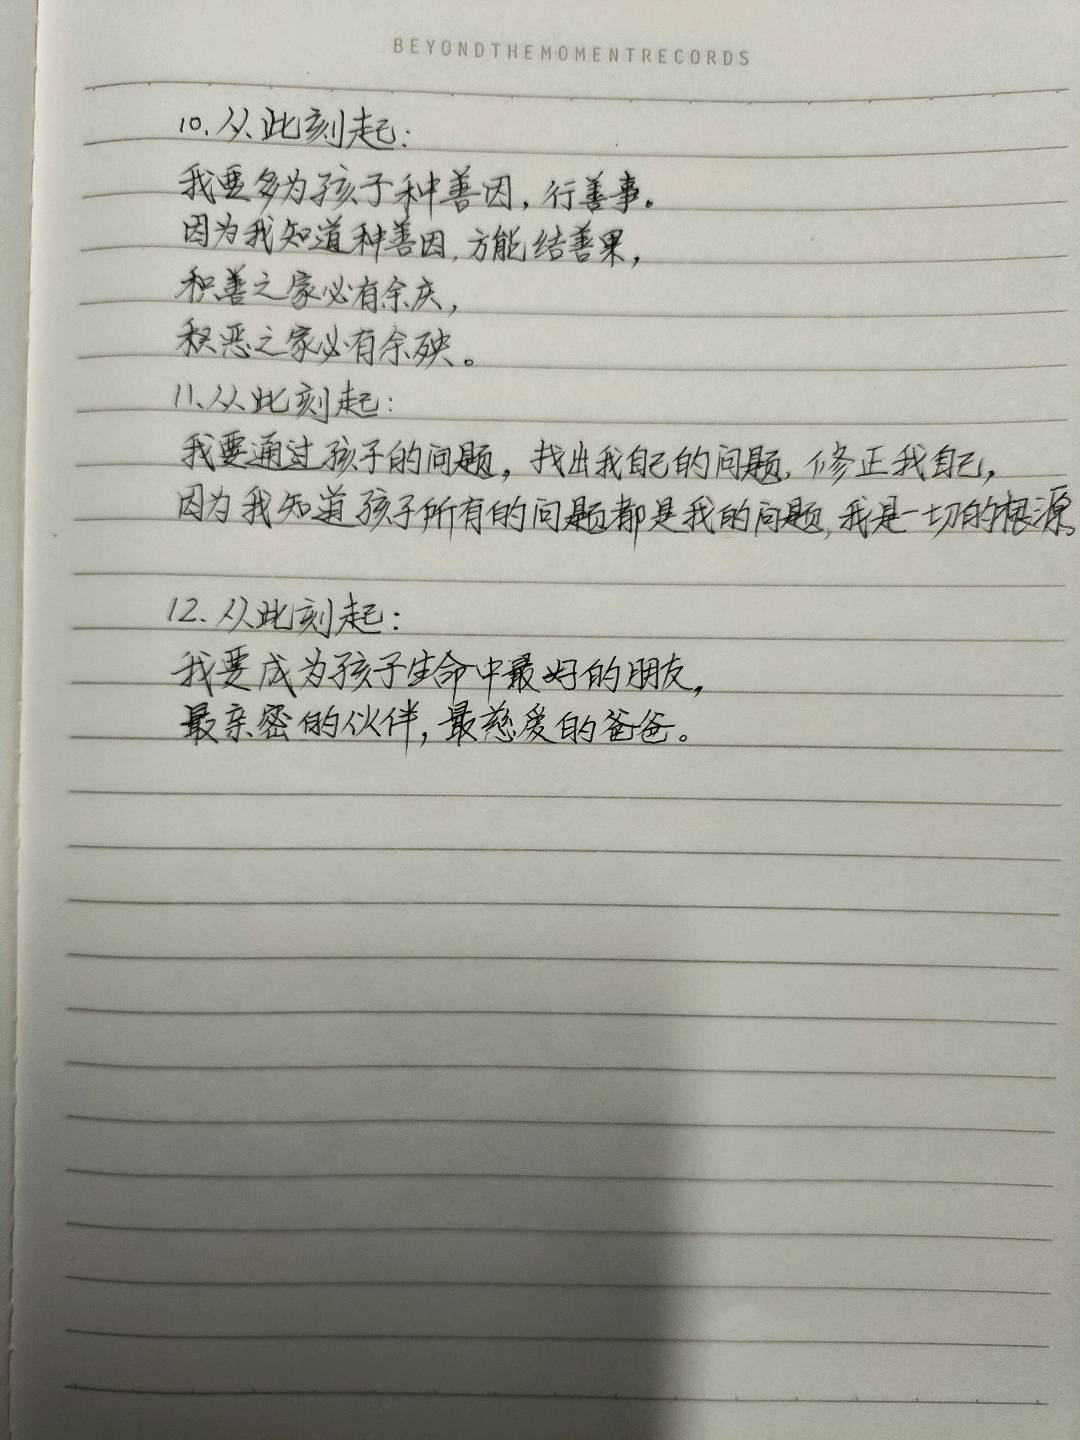 BEYONDTHEMOMENTRECORDS
10.从此刻起:
我要多为孩子种善因,行善事。
因为我知道种善因,方能结善果,
积善之家必有余庆,
积恶之家必有余殃。
11.从此刻起:
我要通过孩子的问题,找出我自己的问题,修正我自己,
因为我知道孩子所有的问题都是我的问题,我是一切的根源。
12.从此刻起:
我要成为孩子生命中最好的朋友,
最亲密的伙伴,最慈爱的爸爸。